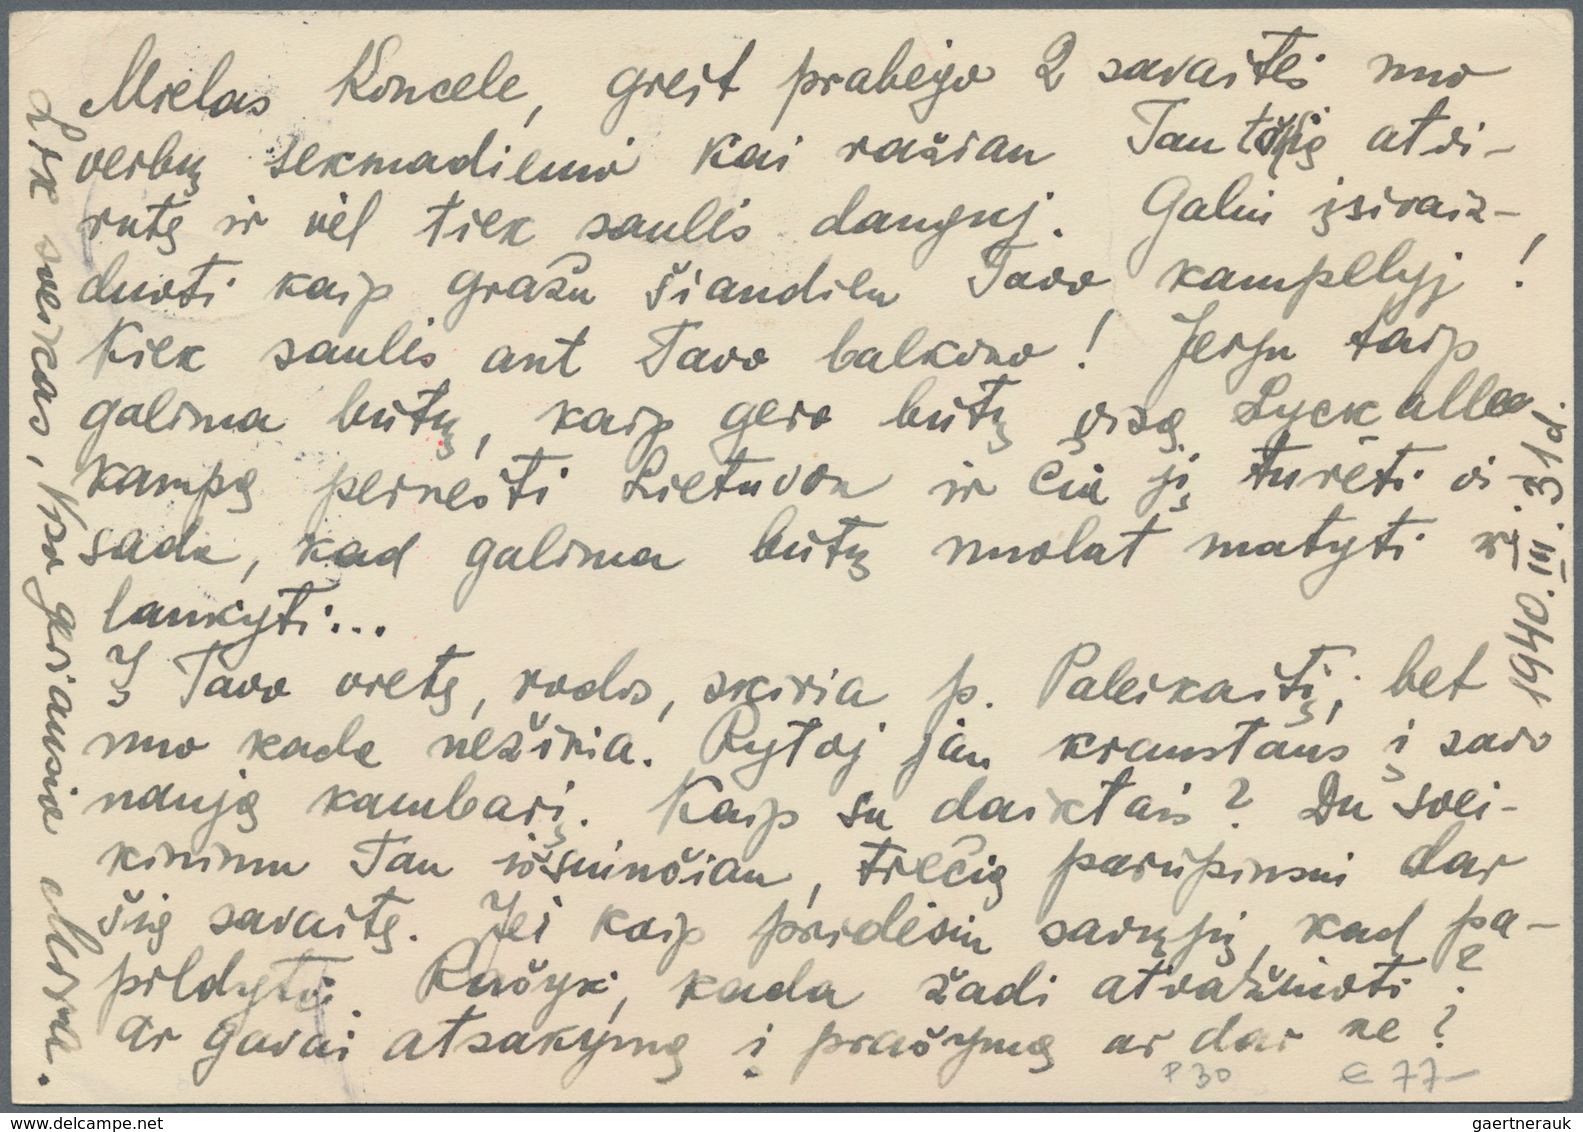 Mielas Koncele, greit prabėgo 2 savaitės nuo
verbų sekmadienio kai rašiau Tau atvi-
rutę ir vėl tiek saulės danguj. Galiu įsivaiz-
duoti kaip gražu šiandien Tavo kampelyj!
Kiek saulės ant Tavo balkono! Jeigu taip
galima būtų, kaip gera būtų visą Lyck allee
kampą pernešti Lietuvon ir čia jį turėti vi-
sada, kad galima būtų nuolat matyti ir
lankyti...
Į Tavo vietą, rodos, skiria p. Paleikaitį, bet
nuo kada nežinia. Rytoj jau kraustaus į savo
naują kambarį. Kaip su daiktais? Du svei-
kinimu Tau išsiunčiau, trečią parūpinsiu dar
šią savaitę. Jei kaip pridėsiu sąrašą, kad pa-
pildytų. Rašyk, kada žadi atvažiuoti?
Ar gavai atsakymą į prašymą ar dar ne?
Lik sveikas, Viso geriausia Mona.
1940.III.31d.
P 30 € 77-
gaertnerauk